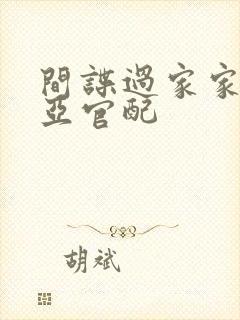 間諜過家家
亞官配
胡斌